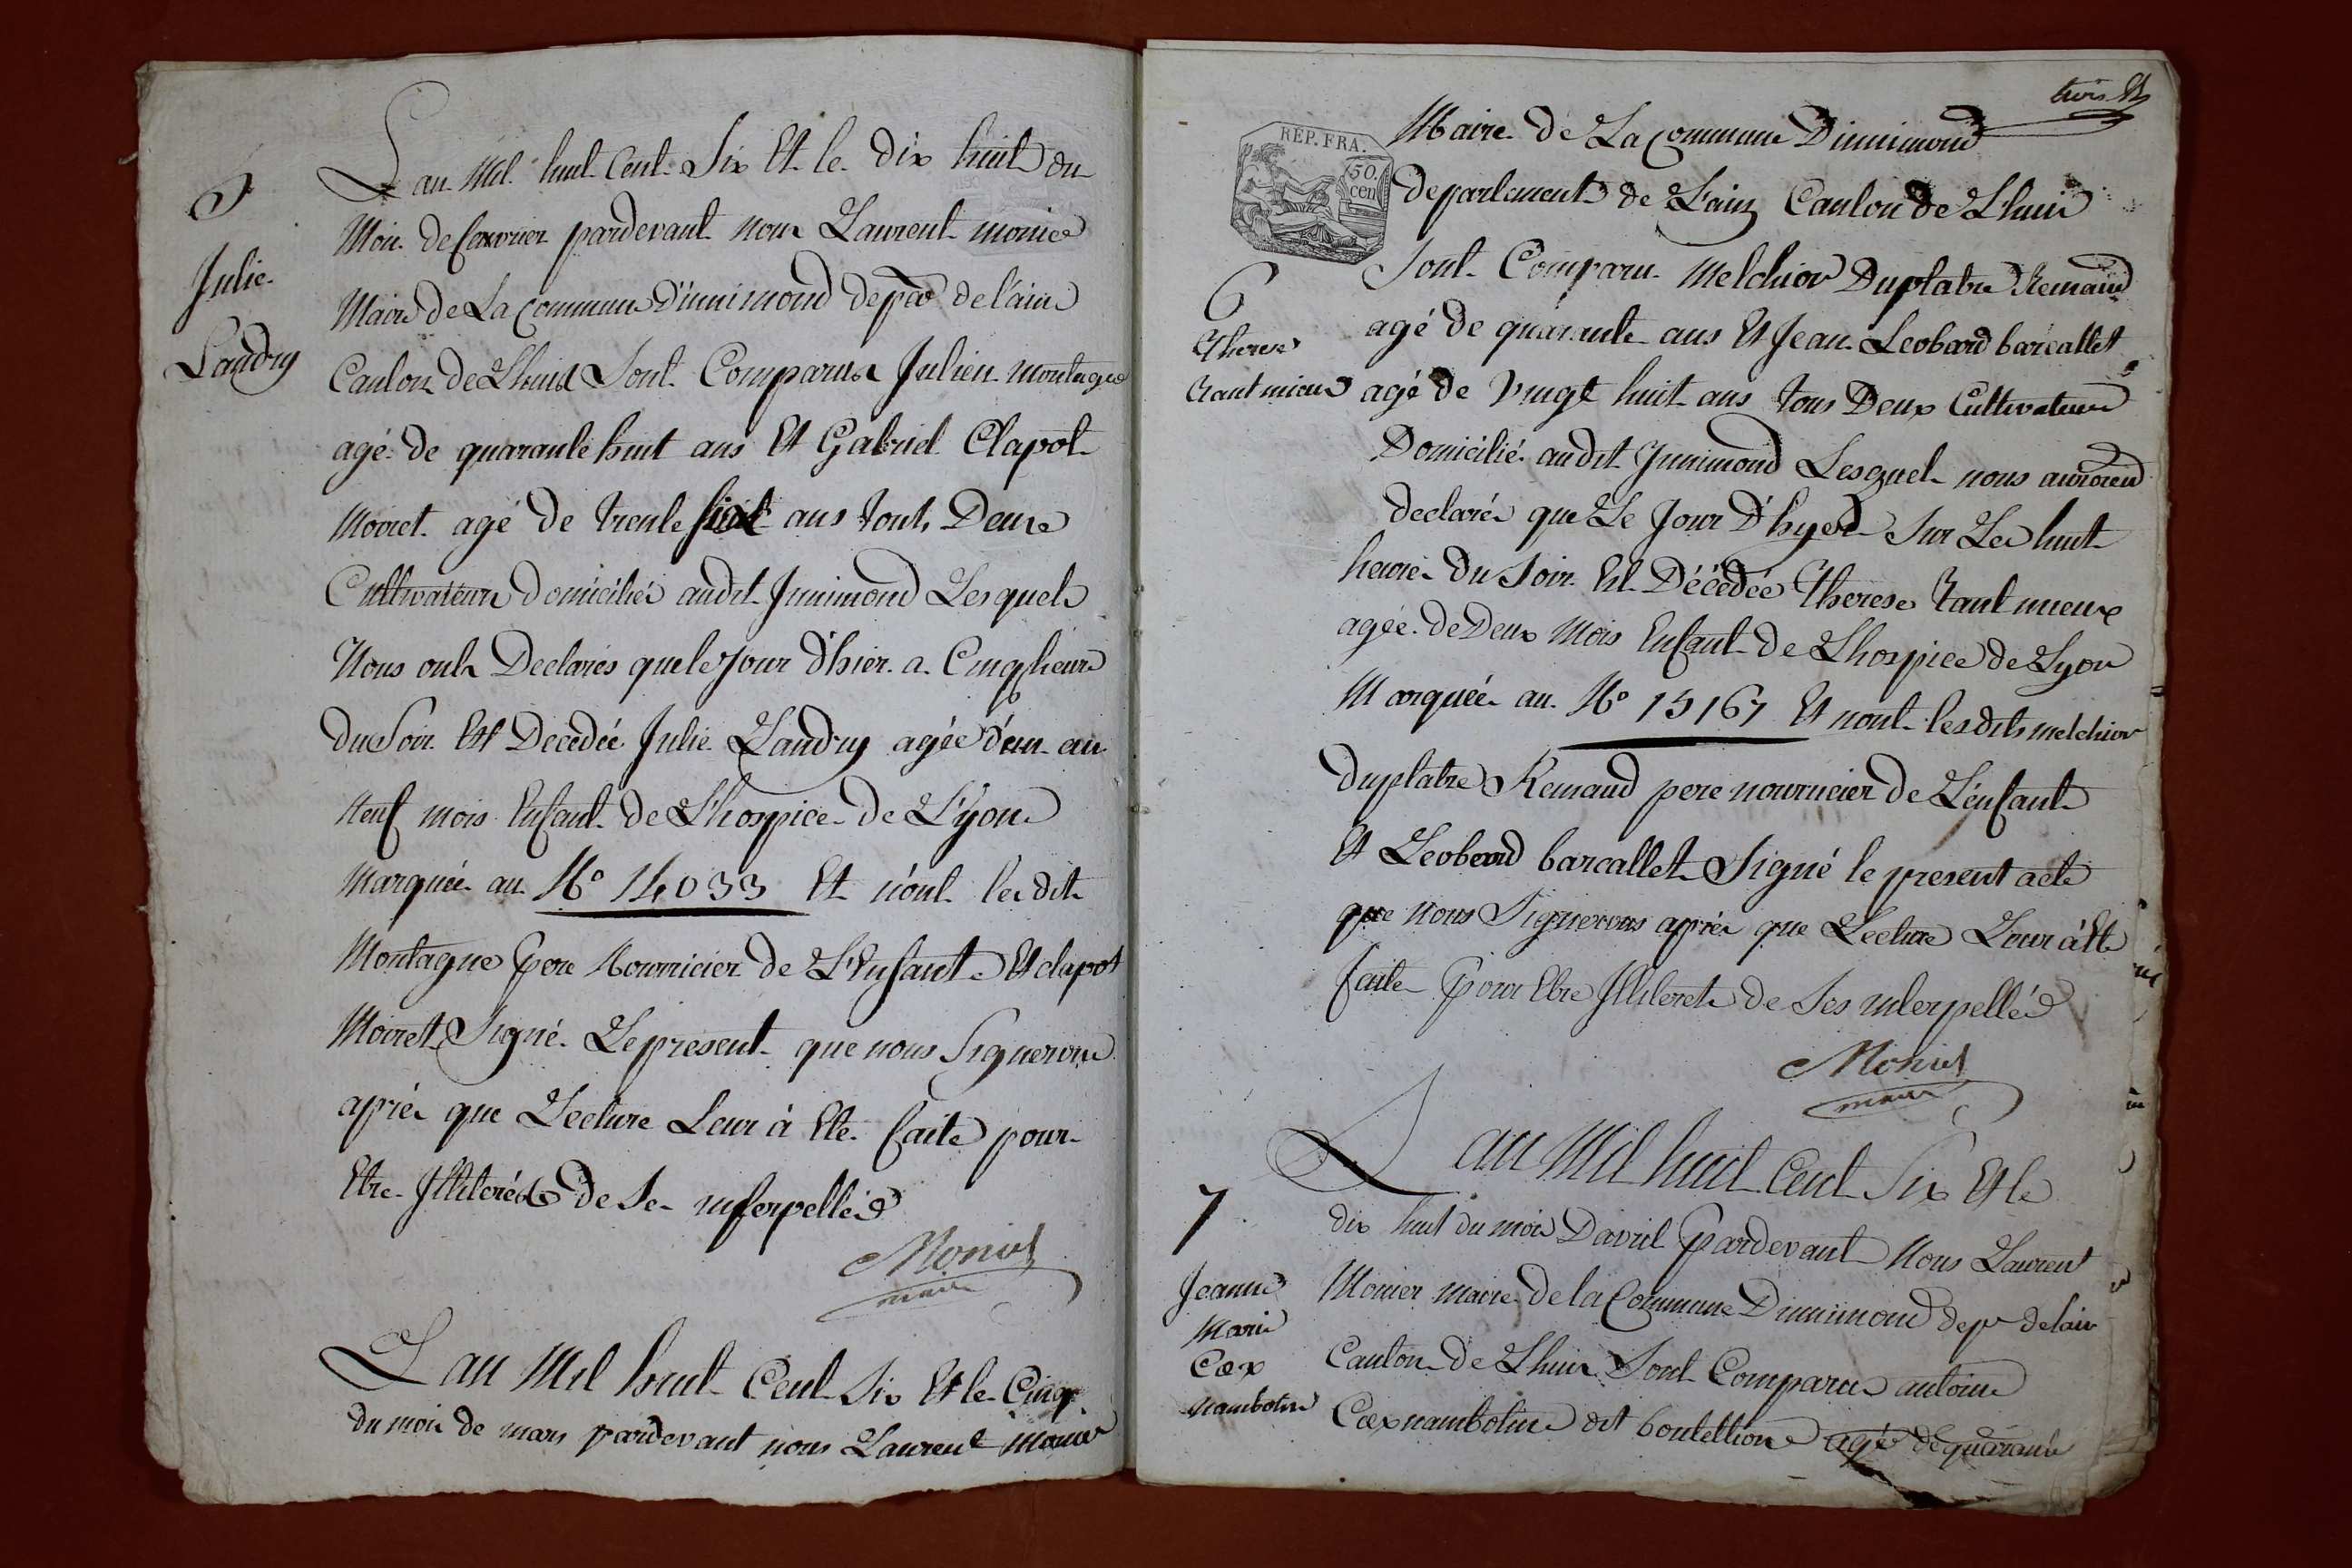 5
Julie
Landry
L'an Mil huit Cent Six Et le dix huit du
Mois de fevrier pardevant nous Laurent monier
Maire de La Commune D'innimond depto de l'ain
Canton de Lhuis Sont Comparus Julien montagne
agé de quarante huit ans Et Gabriel Clapot
Moiret agé de trente ans touts Deux
Cultivateurs domiciliés audit Innimond Lesquels
Nous onts Declarés que le jour d'hier a Cinq heure
du Soir Est Decedée Julie Landry agée d'un an
neuf mois Enfant de L'hospice de Lyon
marquée au No 14033 Et n'ont les dit
Montagne pere Nourricier de L'Enfant Et clapot
Moiret Signé Le present que nous Signerons
aprés que Lecture Leur à Ete faite pour
Etre Illiterés de Se interpellés
Monier
maire
L'an Mil huit Cent Six Et le Cinq
du mois de mars pardevant nous Laurent monier
trois
REP. FRA.
50.
cen
Maire de La Commune Dinnimond
departement de L'ain Canton de Lhuis
Sont Comparu Melchior Duplatre Remand
agé de quarante ans Et Jean Leobard barcallet
agé de vingt huit ans tous Deux Cultivateurs
Domicilié audit Innimond Lesquel nous auroient
declarés que Le Jour D'hyer Sur Les huit
heures du Soir Est Décédée Therese Tant mieux
agée de Deux Mois Enfant de Lhospice de Lyon
Marquée au No 15167 Et nont les dits melchior
duplatre Remand pere nourricier de L'enfant
Et Leobard barcallet Signé le present acte
que nous Signerons aprés que Lecture Leur à Ete
faite pour Etre Illiterets de Ses interpellés
6
Therese
tant mieux
Monier
maire
7
Jeanne
Marie
Cox
nambotin
L'an Mil huit Cent Six Et le
dix huit du mois Davril pardevant Nous Laurent
Monier maire de la Commune Dinnimond dept delain
Canton de Lhuis Sont Comparus antoine
Coxnambotin dit boutellion agé de quarante